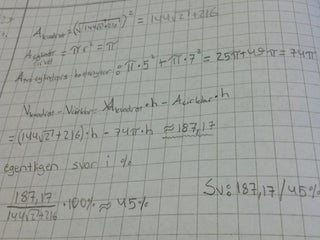 A kvadrat = (√144√2+216)² = 144√2 + 216
A cirkel = πr² = π
π·5² + π·7² = 25π+49π = 74π
V kvadrat - V cirklar = A kvadrat·h - A cirklar·h
= (144√2+216)·h - 74π·h ≈ 187,17
egentligen svar i %
187,17 / 144√2+216 · 100% ≈ 45%
Sv: 187,17 / 45%